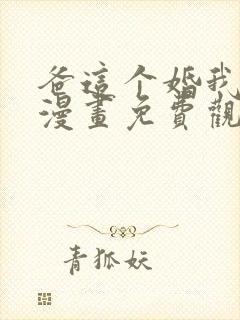 爸這个婚我
漫畫免費觀
青狐妖